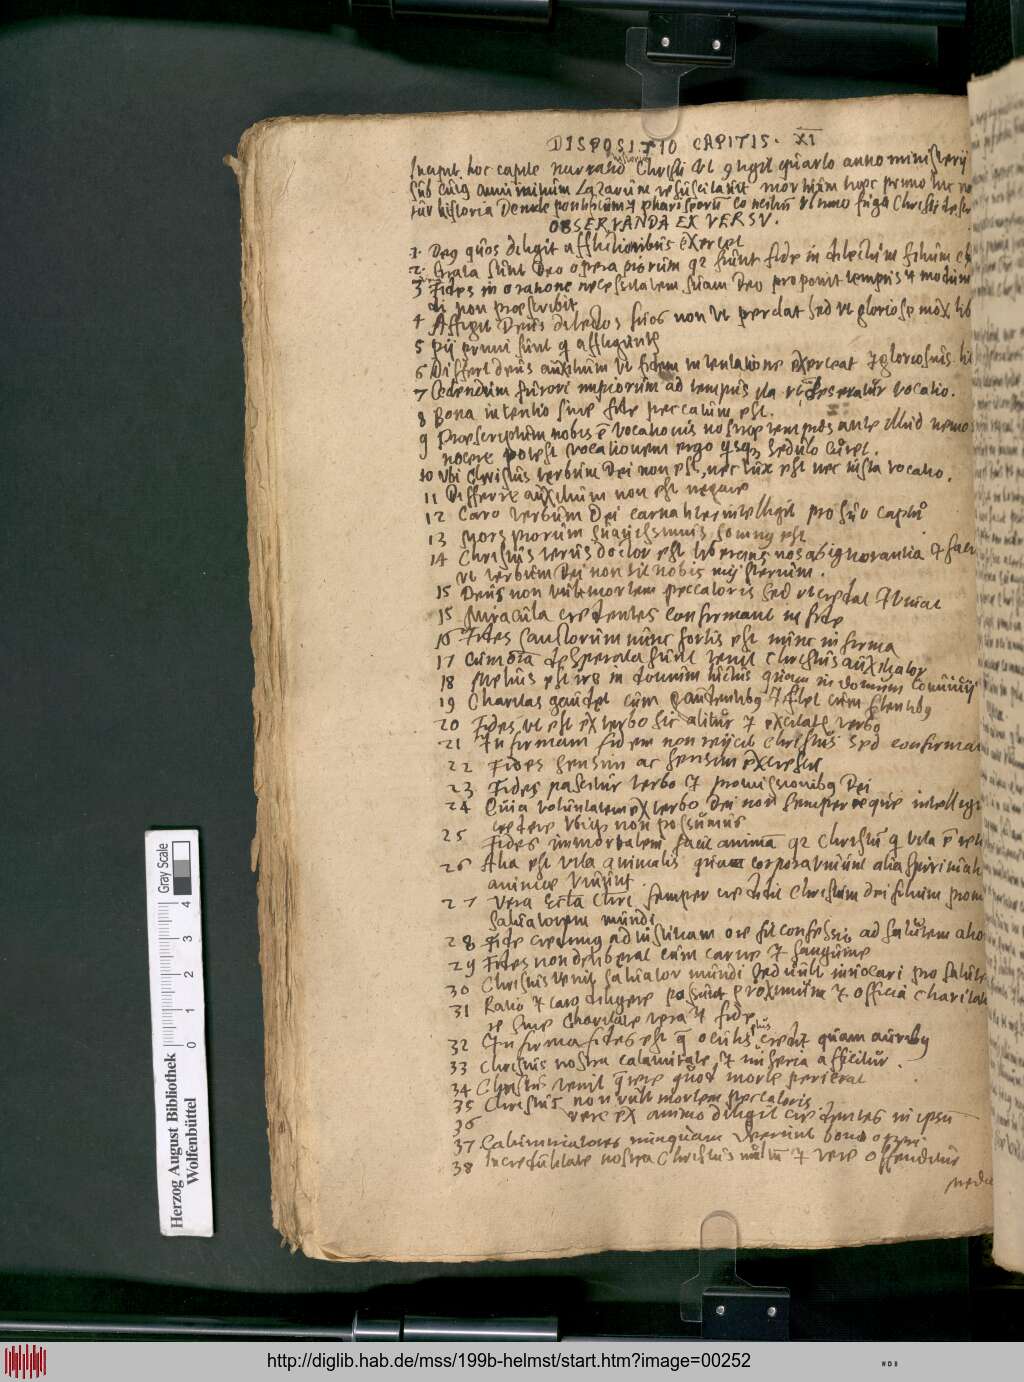 DISPOSITIO CAPITIS. XI
Incipit hoc capite narratio Christi ut contigit quarto anno ministerij
sub cuius Lazarum resuscitavit
historia Deinde pontificum et phariseorum concilium
OBSERVANDA EX VERSU.
1. Deus quos diligit afflictionibus exercet
2. Grata sunt Deo opera piorum quae fiunt fide in dilectum filium
3 Fides in oratione necessitatem suam Deo proponit tempus et modum
ei non praescribit
4 Affligit Deus dilectos suos non ut perdat sed ut gloriose mox lib
5 pij primi sunt qui affliguntur
6 Differt deus auxilium ut fidem in tentatione exerceat et
7 Cedendum furori impiorum ad tempus ita ut deseratur vocatio.
8 Bona intentio sine fide peccatum est.
9 Praescriptum nobis est vocationis nostrae tempus ante illud nemo
nocere potest vocationem ergo quisque sedulo curet.
10 Ubi Christus verbum Dei non est, nec lux est nec iusta vocatio.
11 Differre auxilium non est negare
12 Caro verbum Dei carnaliter intelligit pro suo captu
13 Mors piorum suavissimus somnus est
14 Christus verus doctor est liberans nos ab ignorantia et
ut verbum Dei non sit nobis mysterium.
15 Deus non vult mortem peccatoris sed ut credat et vivat
15 Miracula credentes confirmant in fide
16 Fides sanctorum nunc fortis est nunc infirma
17 Cum omnia desperata sunt venit Christus auxiliator
18 Melius est ire in domum luctus quam in domum convivij
19 Charitas gaudet cum gaudentibus et flet cum flentibus
20 Fides ut est ex verbo sic alitur et excitatur verbo
21 Infirmam fidem non reijcit Christus sed confirmat
22 Fides sensim ac sensim excrescit
23 Fides pascitur verbo et promissionibus Dei
24 Quia voluntatem ex verbo Dei non semper aeque intelligi
credere ubique non possumus
25 Fides immortalem facit animam quia Christum qui vita est
26 Alia est vita animalis qua corpora vivunt alia spiritualis
animae vivunt.
27 Vera Ecclesia Christi semper credidit Christum dei filium prom
salvatorem mundi
28 Fide credimus ad iustitiam ore fit confessio ad salutem
29 Fides non deliberat cum carne et sanguine
30 Christus venit salvator mundi sed vult invocari pro salute
31 Ratio et caro diligere possunt proximum et officia charitat
sine Charitate vera et fide
32 Infirma fides est quae oculis plus credit quam auribus
33 Christus nostra calamitate et miseria afficitur.
34 Christus venit quaerere quod morte perierat
35 Christus non vult mortem peccatoris
36 vere ex animo diligit credentes in ipsum
37 Calumniatores nunquam desunt bono operi
38 Incredulitate nostra Christus multum et vere offenditur
Herzog August Bibliothek
Wolfenbüttel
Gray Scale
0 1 2 3 4
http://diglib.hab.de/mss/199b-helmst/start.htm?image=00252
WDB